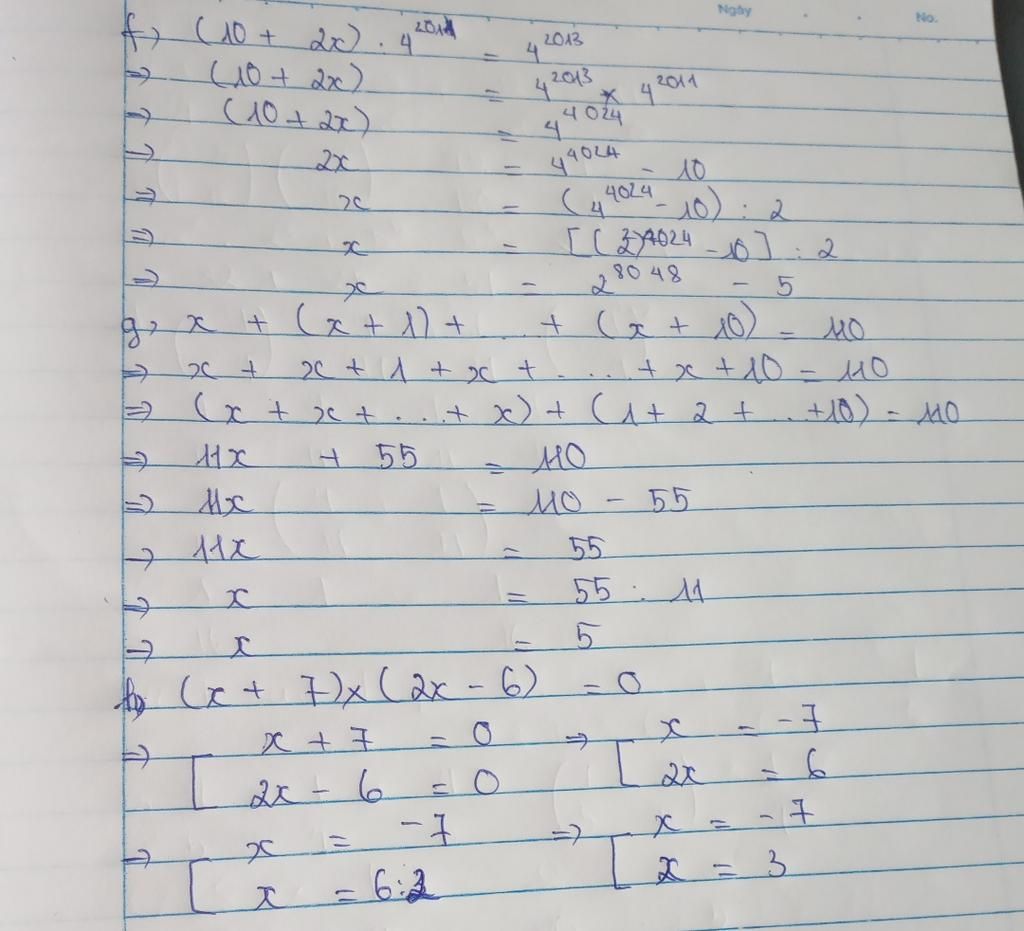 Ngày No.
f, (10 + 2x) . 4^2011 = 4^2013
=> (10 + 2x) = 4^2013 x 4^2011
=> (10 + 2x) = 4^4024
=> 2x = 4^4024 - 10
=> x = (4^4024 - 10) : 2
=> x = [(2^2)^4024 - 10] : 2
=> x = 2^8048 - 5
g, x + (x + 1) + ... + (x + 10) = 110
=> x + x + 1 + x + ... + x + 10 = 110
=> (x + x + ... + x) + (1 + 2 + ... + 10) = 110
=> 11x + 55 = 110
=> 11x = 110 - 55
=> 11x = 55
=> x = 55 : 11
=> x = 5
h, (x + 7) x (2x - 6) = 0
=> [ x + 7 = 0 => [ x = -7
2x - 6 = 0 2x = 6
=> [ x = -7 => [ x = -7
x = 6:2 x = 3